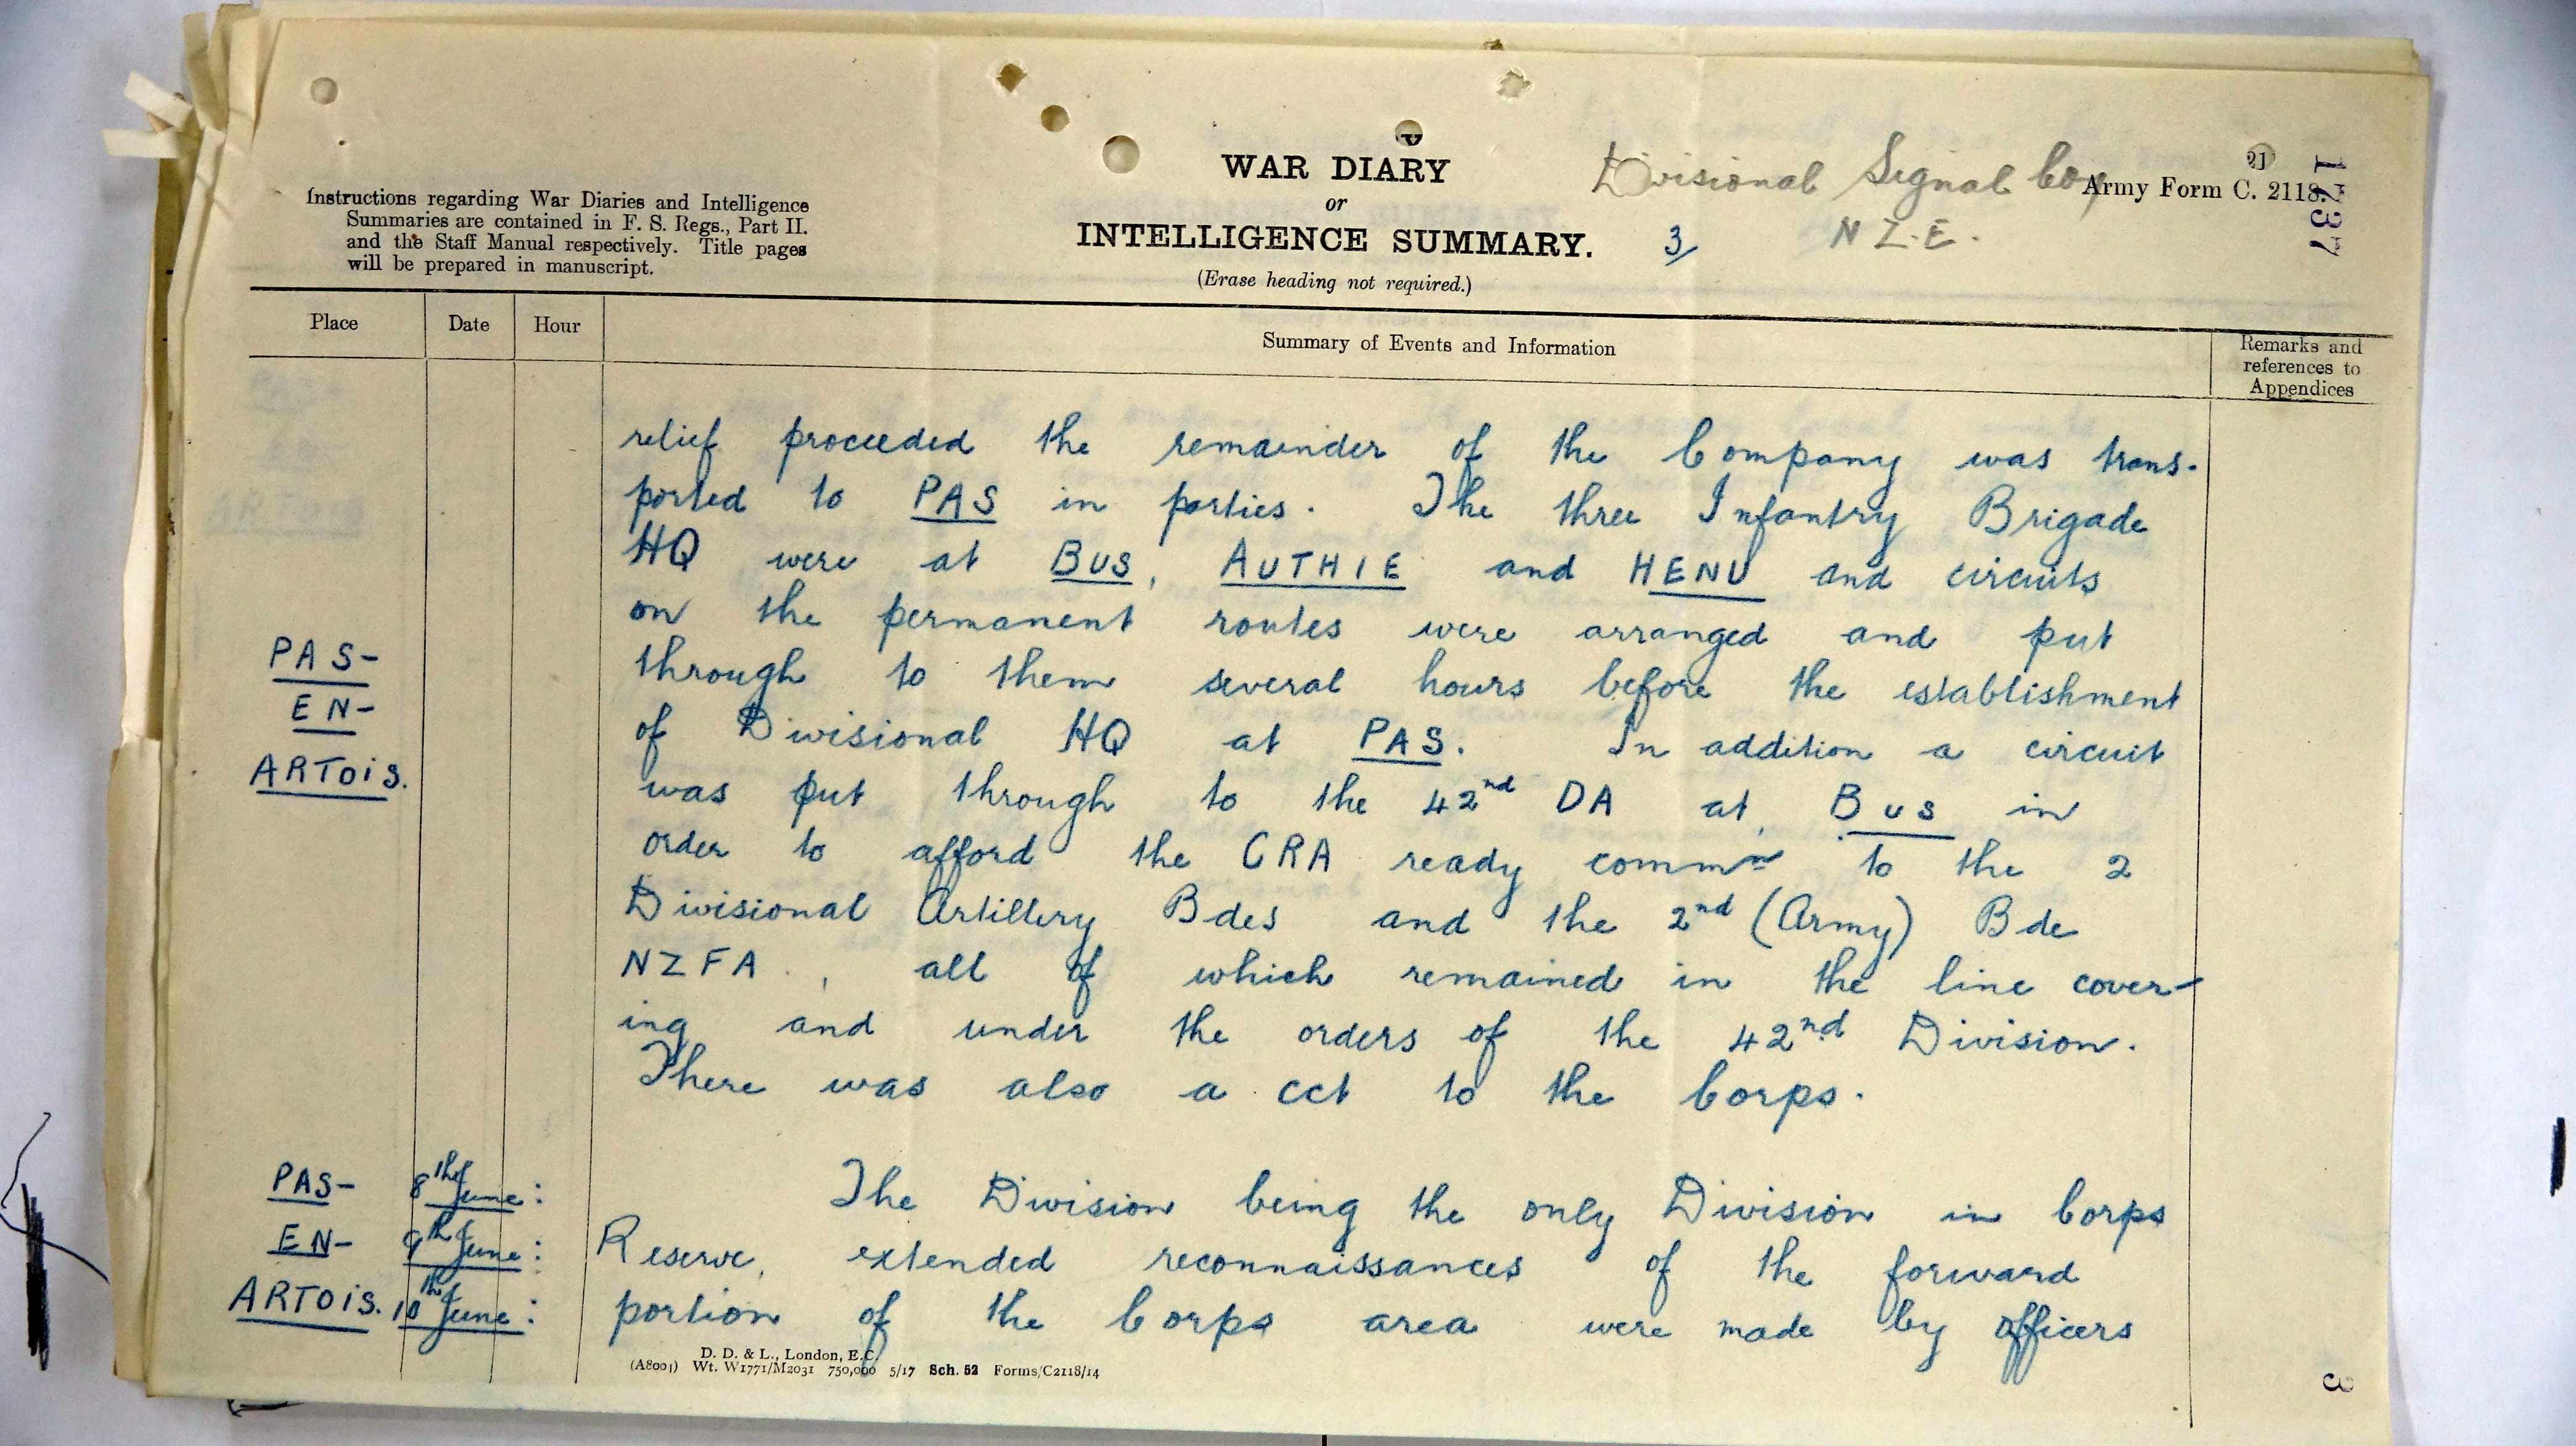 Divisional Signal Coy
N Z.E.
Army Form C. 2118.
21
1237
WAR DIARY
or
INTELLIGENCE SUMMARY.
3/
(Erase heading not required.)
Instructions regarding War Diaries and Intelligence
Summaries are contained in F. S. Regs., Part II.
and the Staff Manual respectively. Title pages
will be prepared in manuscript.
Place Date Hour Summary of Events and Information Remarks and
references to
Appendices
relief proceeded the remainder of the Company was trans-
ported to PAS in parties. The three Infantry Brigade
HQ were at BUS, AUTHIE and HENU and circuits
on the permanent routes were arranged and put
PAS- through to them several hours before the establishment
EN- of Divisional HQ at PAS. In addition a circuit
ARTOIS. was put through to the 42nd DA at BUS in
order to afford the CRA ready commn to the 2
Divisional Artillery Bdes and the 2nd (Army) Bde
NZFA, all of which remained in the line cover-
ing and under the orders of the 42nd Division.
There was also a cct to the Corps.
PAS- 8th June: The Division being the only Division in Corps
EN- 9th June: Reserve, extended reconnaissances of the forward
ARTOIS. 10th June: portion of the Corps area were made by officers
D. D. & L., London, E.C.
(A8001) Wt. W1771/M2031 750,000 5/17 Sch. 52 Forms/C2118/14
3